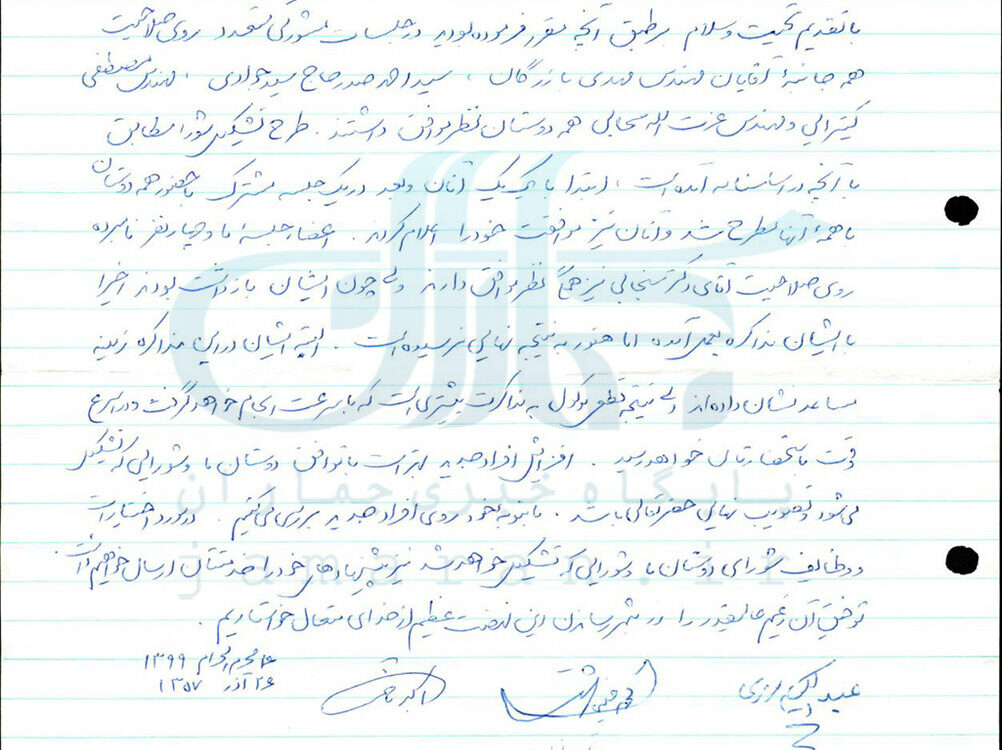 با تقدیم تحیت و سلام برطبق آنچه مقرر فرموده بودید در جلسات مشورتی متعدد روی صلاحیت
همه جانبهٔ آقایان مهندس مهدی بازرگان ، سید احمد صدر حاج سید جوادی ، مهندس مصطفی
کتیرائی و مهندس عزت الله سحابی همه دوستان نظر موافق داشتند . طرح تشکیل شورا مطابق
با آنچه در اساسنامه آمده است ، ابتدا با یک یک آنان و بعد در یک جلسه مشترک با حضور همه دوستان
با همهٔ آنها مطرح شد و آنان نیز موافقت خود را اعلام کردند . اعضاء جلسهٔ ما و چهار نفر نامبرده
روی صلاحیت آقای دکتر سنجابی نیز همگی نظر موافق دارند ولی چون ایشان بازداشت بودند اخیرا
با ایشان مذاکره بعمل آمده اما هنوز به نتیجه نهایی نرسیده است . البته ایشان در این مذاکره زمینه
مساعد نشان داده‌اند ولی نتیجه قطعی موکول به مذاکرات بیشتری است که با سرعت انجام خواهد گرفت و در اسرع
وقت باستحضارتان خواهد رسید . افزایش افراد جدید بهتر است با توافق دوستان ما و شورایی که تشکیل
می‌شود و تصویب نهایی حضرتعالی باشد . ما بنوبه خود روی افراد جدید بررسی می‌کنیم . در مورد اختیارات
و وظائف شورای دوستان ما و شورایی که تشکیل خواهد شد نیز پیشنهادهای خود را خدمتتان ارسال خواهیم داشت .
توفیق آن زعیم عالیقدر را در بثمر رساندن این نهضت عظیم از خدای متعال خواستاریم .
۱۶ محرم الحرام ۱۳۹۹
۲۶ آذر ۱۳۵۷
عبدالکریم
پایگاه خبری جماران
jamaran.ir